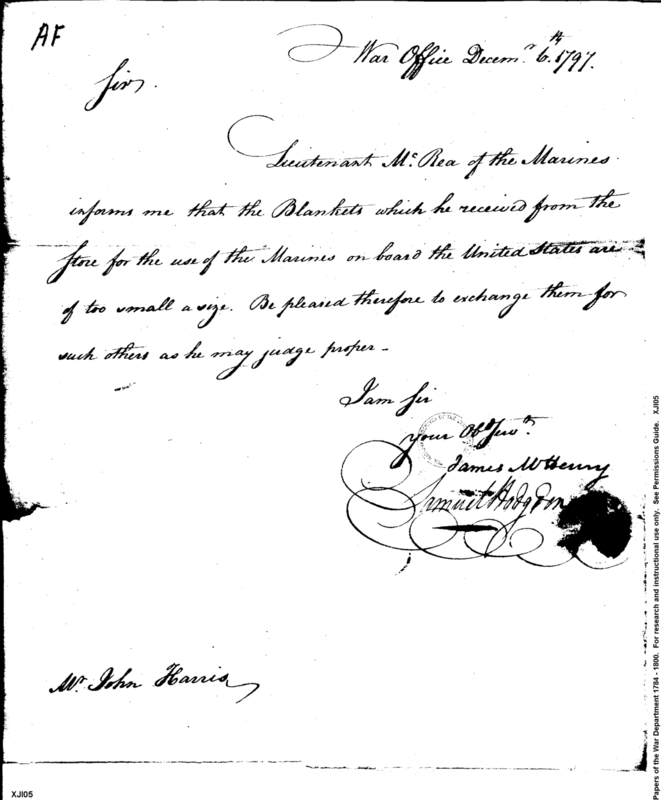 AF
War Office Decemr. 6.th 1797.
Sir.
Lieutenant Mc. Rea of the Marines
informs me that the Blankets which he received from the
Store for the use of the Marines on board the United States are
of too small a size. Be pleased therefore to exchange them for
such others as he may judge proper-
I am Sir
your Obd. Servt.
James McHenry
Samuel Hodgdon
Mr. John Harris
XJI05
Papers of the War Department 1784 - 1800. For research and instructional use only. See Permissions Guide. XJI05